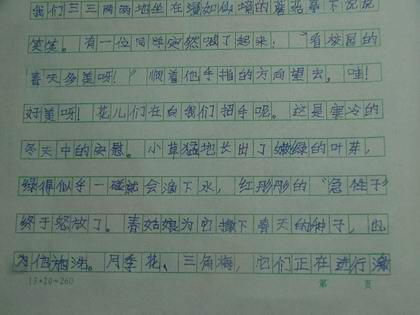 我们三三两两地坐在宛如仙境的蘑菇亭下说说
笑笑。有一位同学突然喊了起来："看校园的
春天多美呀！"顺着他手指的方向望去，哇！
好美呀！花儿们在向我们招手呢。这是寒冷的
冬天中的安慰。小草猛地长出了嫩绿的叶芽，
绿得似乎一碰就会滴下水，红彤彤的"急性子"
终于怒放了。春姑娘为它撒下春天的种子，也
为它洒浇。月季花、三角梅，它们正在进行激
15×20=260
第 页